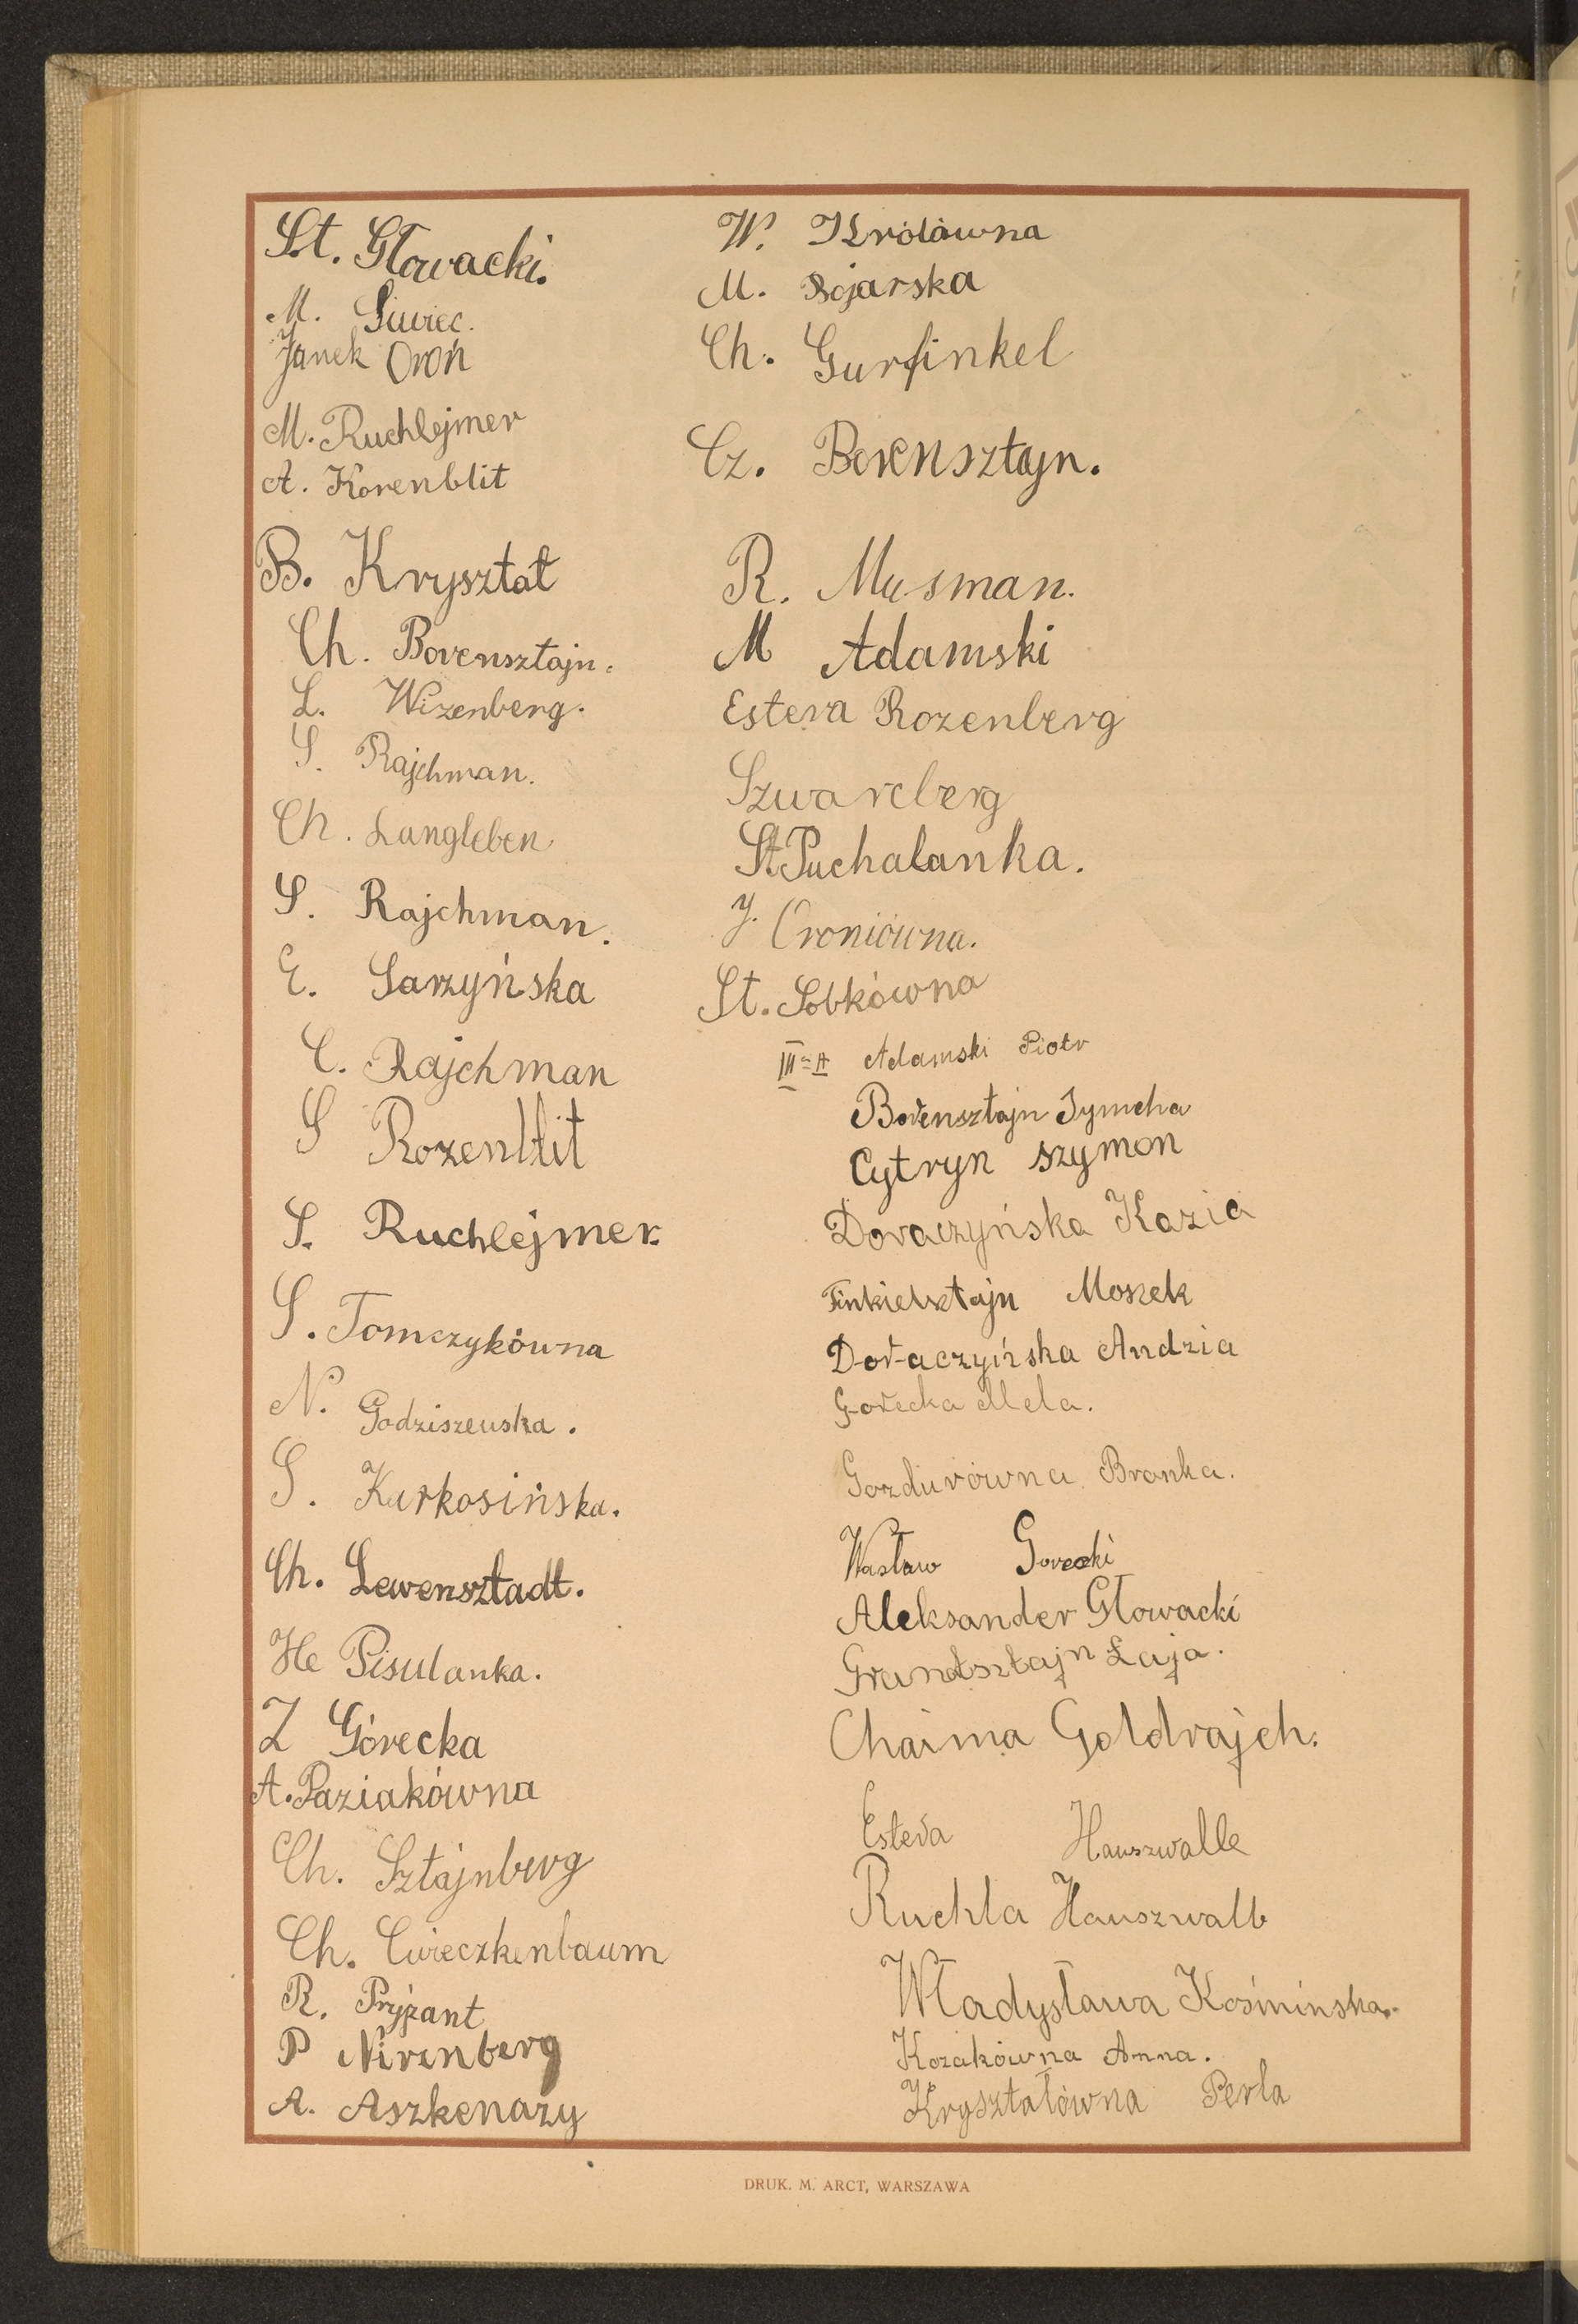 St. Głowacki.
M. Siwiec.
Janek Oroń
M. Ruchlejmer
A. Korenblit
B. Kryształ
Ch. Borensztajn.
L. Wizenberg.
S. Rajchman.
Ch. Langleben
S. Rajchman.
E. Sarzyńska
C. Rajchman
S Rozenblit
S. Ruchlejmer.
S. Tomczykówna
N. Godziszewska.
S. Karkosińska.
Ch. Lewensztadt.
He Pisulanka.
Z Górecka
A. Paziakówna
Ch. Sztajnberg
Ch. Cwieczkenbaum
R. Pryzant
P Nirenberg
A. Aszkenazy
W. Królówna
M. Bojarska
Ch. Gurfinkel
Cz. Berensztajn.
R. Musman.
M Adamski
Estera Rozenberg
Szwarcberg
St. Puchalanka.
J. Oroniówna.
St. Sobkówna
III=A Adamski Piotr
Borensztajn Symcha
Cytryn Szymon
Doraczyńska Kazia
Finkielsztajn Moszek
Doraczyńska Andzia
Gorecka Mela.
Gozdurówna Bronka.
Wasław Gorecki
Aleksander Głowacki
Grandsztajn Łaja.
Chaima Goldrajch.
Estera Hauszwalle
Ruchla Hauszwalb
Władysława Kośmińska.
Kozakówna Anna.
Kryształówna Perla
DRUK. M. ARCT, WARSZAWA